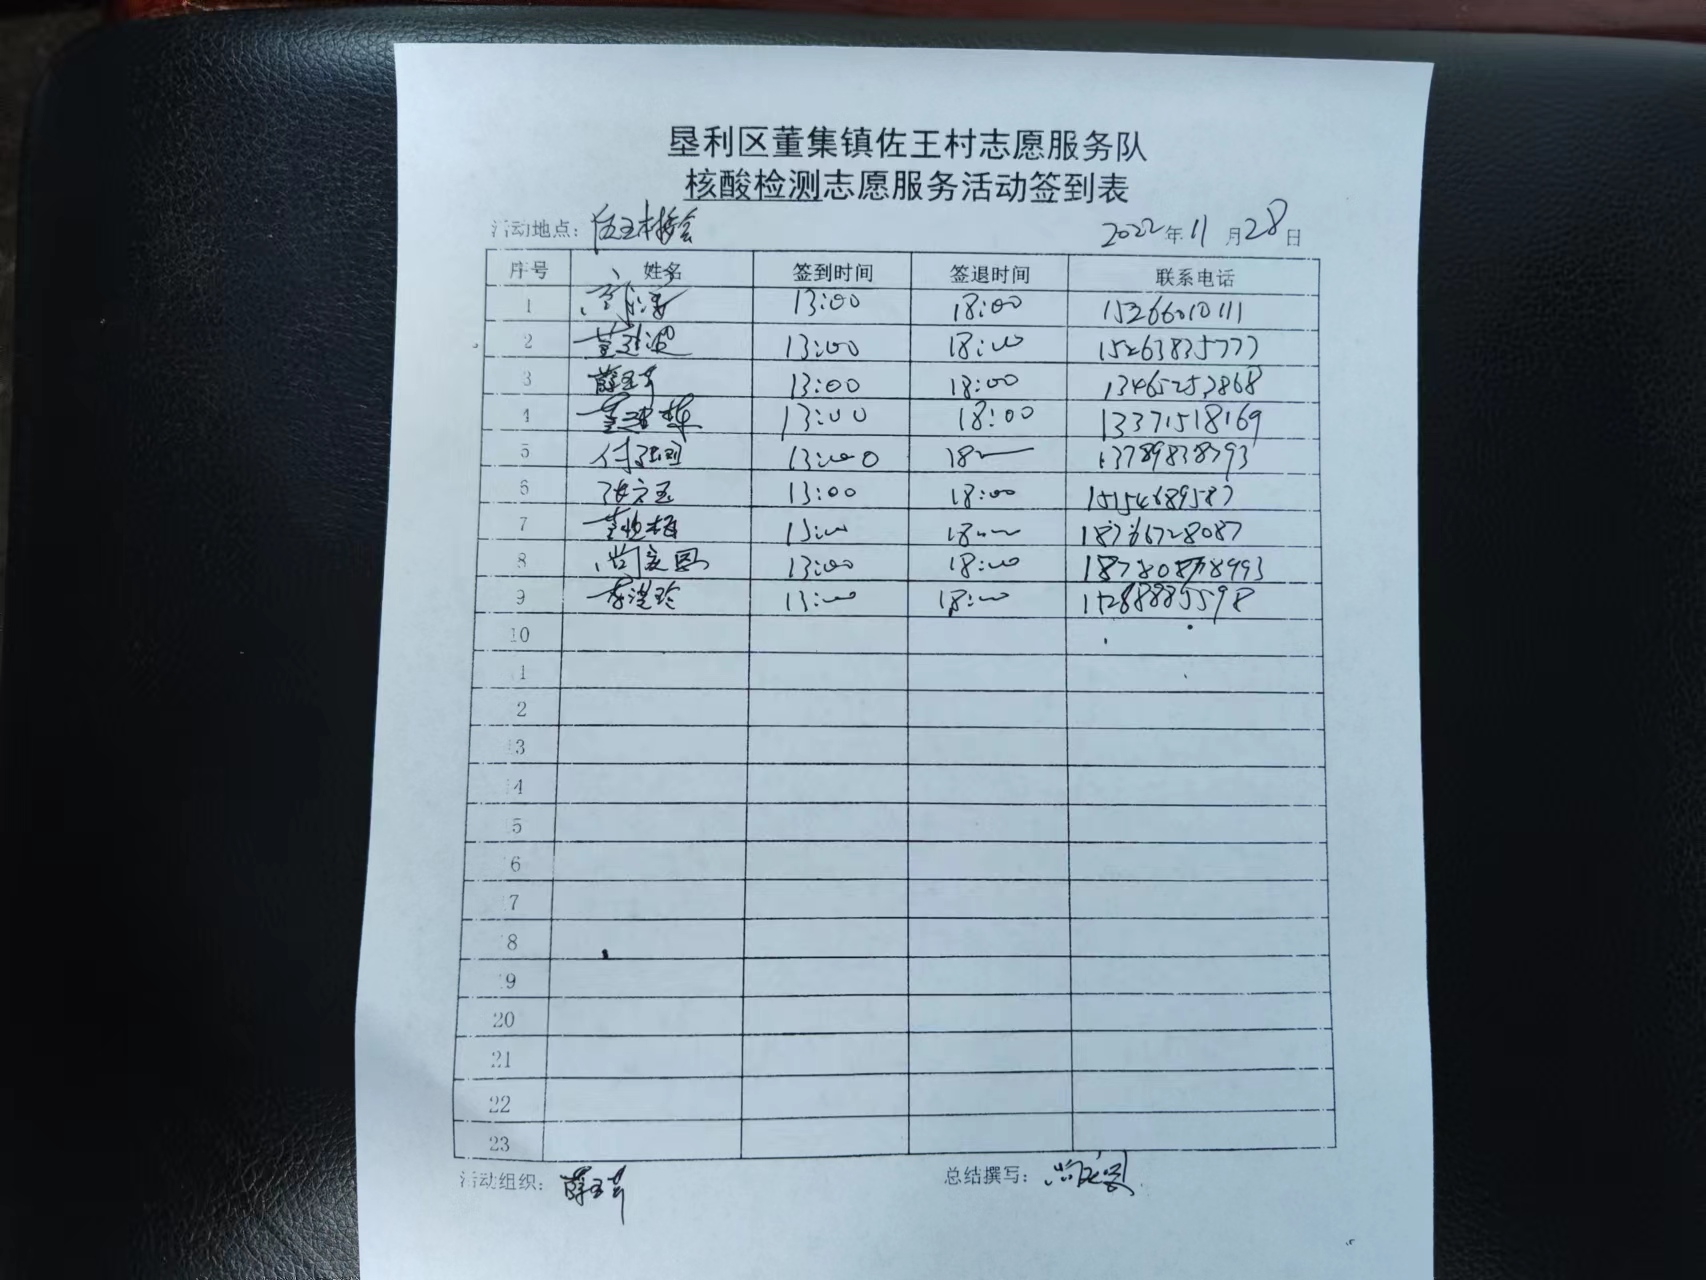 垦利区董集镇佐王村志愿服务队
核酸检测志愿服务活动签到表
活动地点：佐王村委会 2022年11月28日
序号 姓名 签到时间 签退时间 联系电话
1 13:00 18:00 15266010111
2 13:00 18:00 15263835777
3 薛玉芹 13:00 18:00 13465253868
4 13:00 18:00 13371518169
5 13:00 18 13789838793
6 张立玉 13:00 18:00 15154689587
7 18:00 18766728087
8 尚 13:00 18:00
9 李洪玲 13:00 18:00 15288885598
10
1
2
3
4
5
6
7
8
9
20
21
22
23
活动组织：薛玉芹 总结撰写：尚